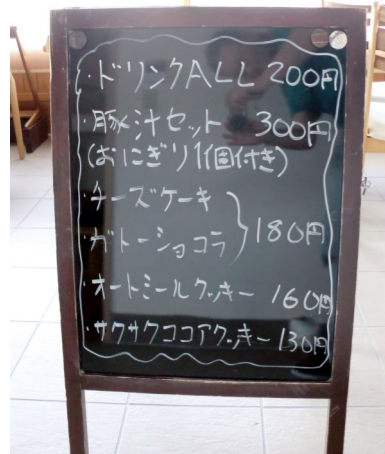 ・ドリンクALL 200円
・豚汁セット 300円
(おにぎり1個付き)
・チーズケーキ
・ガトーショコラ } 180円
・オートミールクッキー 160円
・サクサクココアクッキー 130円